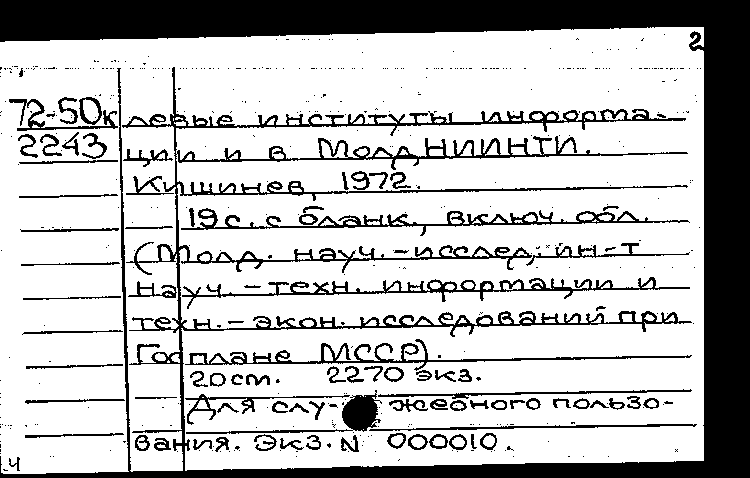 2
72-50к левые институты информа-
2243 ции и в МолдНИИНТИ.
Кишинев, 1972.
19 с. с бланк., включ. обл.
(Молд. науч.-исслед. ин-т
науч.-техн. информации и
техн.-экон. исследований при
Госплане МССР).
20 см. 2270 экз.
Для слу- жебного пользо-
вания. Экз. N 000010.
ч